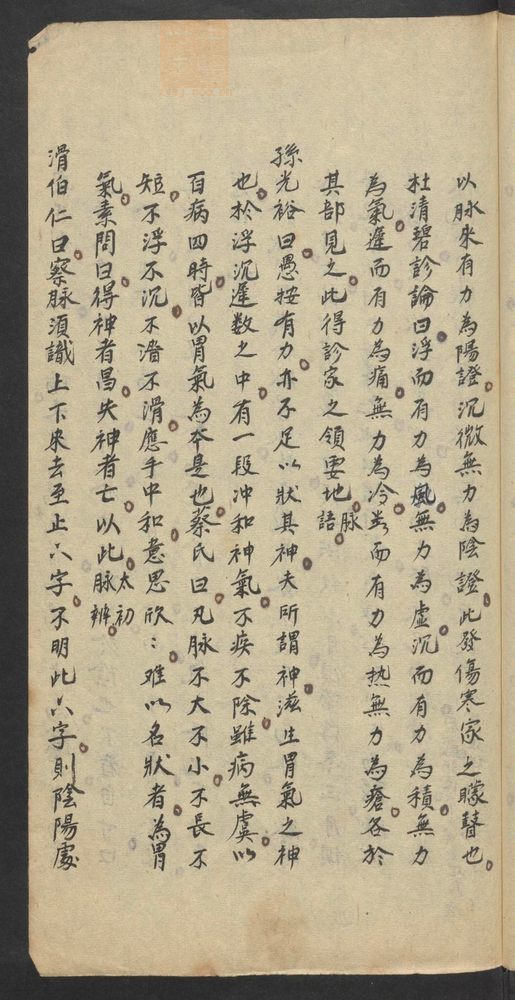 以脉来有力為陽證沉微無力為陰證此發傷寒家之矇瞽也
杜清碧診論曰浮而有力為風無力為虛沉而有力為積無力
為氣遲而有力為痛無力為冷数而有力為热無力為瘡各於
其部見之此得診家之領要地脉語
孫光裕曰愚按有力亦不足以狀其神夫所謂神滋生胃氣之神
也於浮沉遲数之中有一段冲和神氣不疾不除雖病無虞以
百病四時皆以胃氣為本是也蔡氏曰凡脉不大不小不長不
短不浮不沉不濇不滑應手中和意思欣：难以名狀者為胃
氣素問曰得神者昌失神者亡以此脉辨太初
滑伯仁曰察脉須識上下来去至止六字不明此六字則陰陽虛